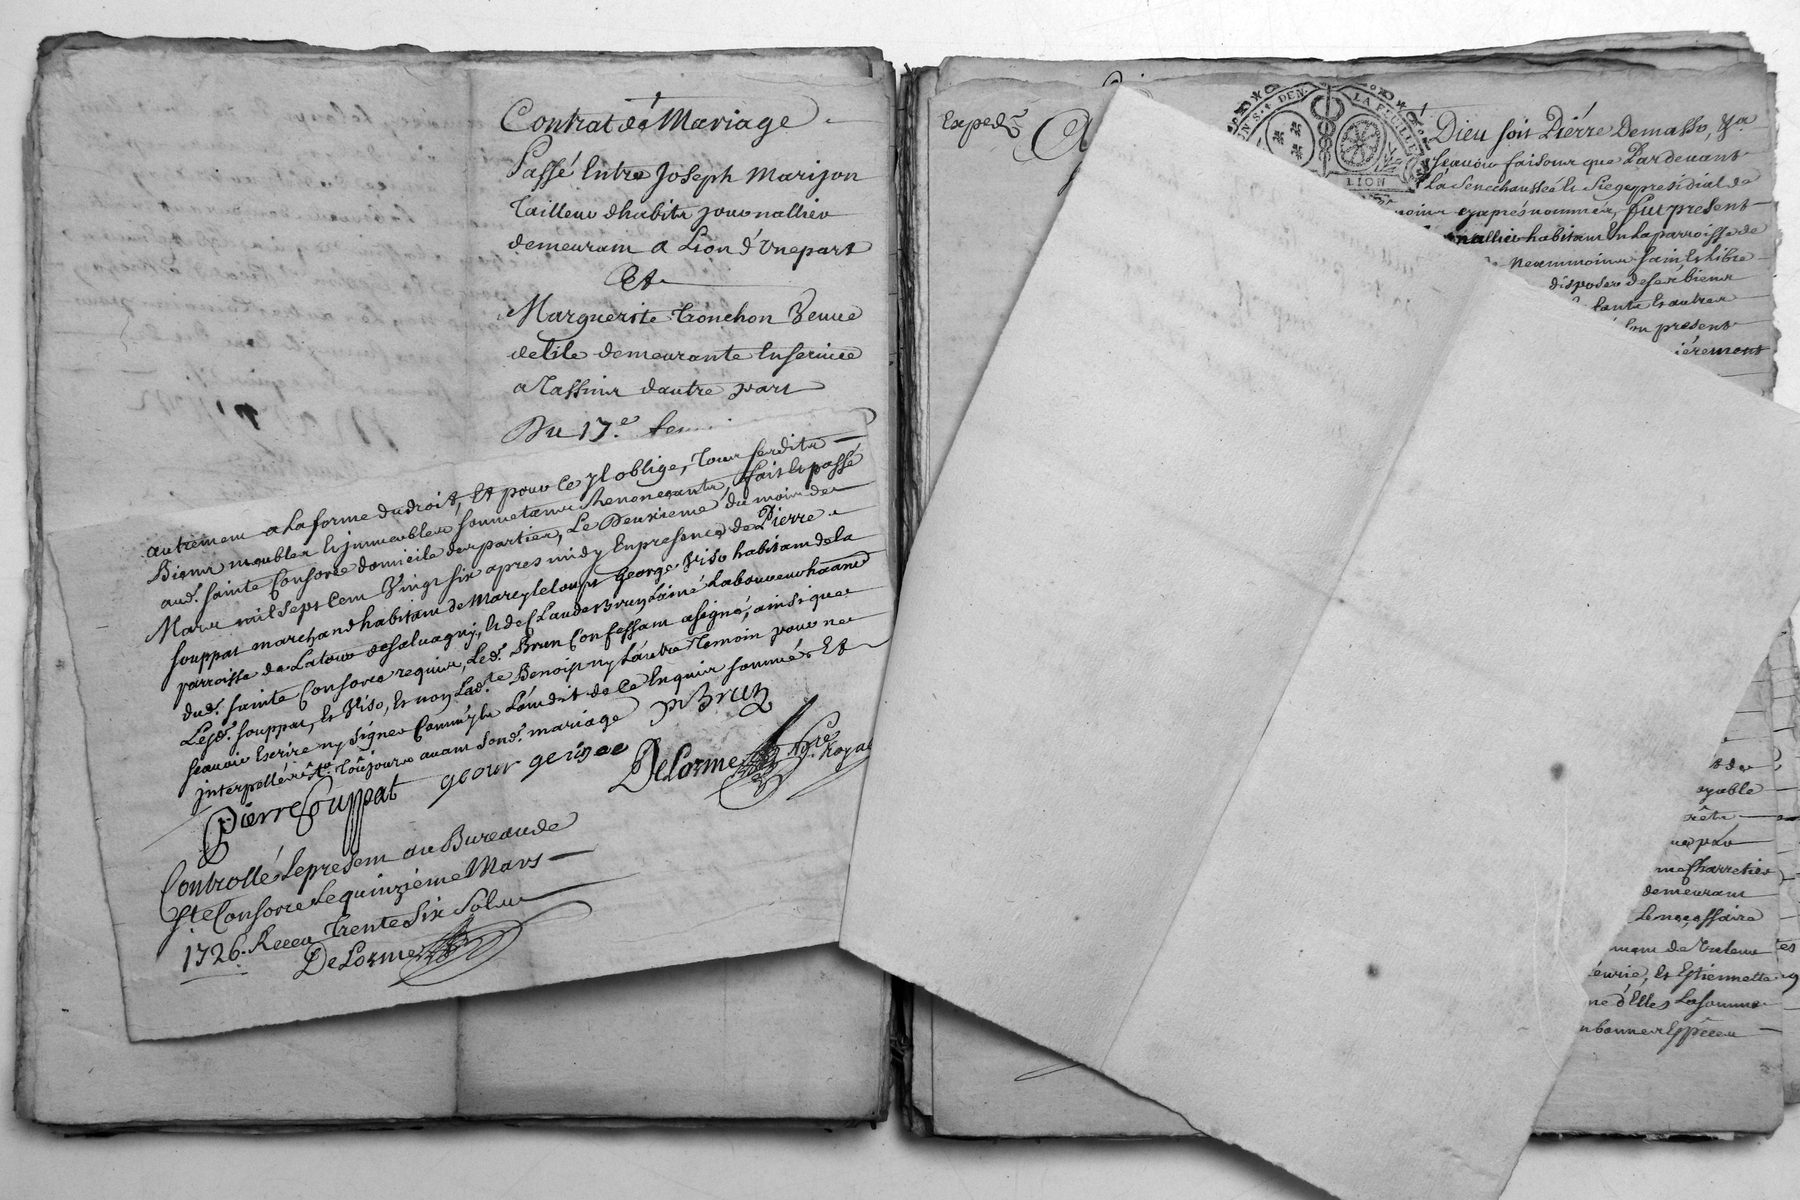 Contrat de Mariage
Passé Entre Joseph Marijon
Tailleur dhabits journallier
demeurant a Lion d'une part
Et
Marguerite Tronchon Veuve
delile demeurante En service
a Tassins dautre part
Du 17.e
autrement a la forme du droit, Et pour ce yl oblige, Tous sesdits
Biens meubles Et jmmeubles soumetans Renonçants, fait Et passé
aud. sainte Consorce domicile des parties, Le Deuxieme du mois de
Mars mil sept cent Vingt six apres midy En presence de Pierre
souppat marchand habitant de Marcy le loup George Viso habitant de la
parroisse de Latour de salvagny, Et de Claude Brun Lainé Laboureur habitant
dud. sainte Consorce requis, Led. Brun Confessant a signé, ainsi que
Lesd. souppat, Et Viso, Et non Lad.te Benoist ny L'autre Temoin pour ne
sçavoir Escrire ny signer Comm'yls L'ont dit de ce Enquis sommés Et
jnterpellés Toujours avant send. mariage
P Brun
Pierre Souppat george
DeLorme No.re Royal
Controllé Le present au Bureau de
S.te Consorce Le quinzieme Mars
1726. Receu Trente six sols
DeLorme
Exped.é
GEN.S. DEN. LA FEUILLE
LION
A Dieu soit Pierre Demasso, &a
sçavoir faisons que Pardevant
La Senechaussée Et Siege presidial de
temoins cy aprés nommés, fut present
journallier habitant En la parroisse de
Neanmoins sain Et libre
disposer de ses biens
tant Et autres
En present
ierement
Et de
ayable
rêts
par
me Charretier
demeurant
Le necessaire
mant de Valeur
Et Estiennette
ne d'Elles La somme
n bonnes Especes